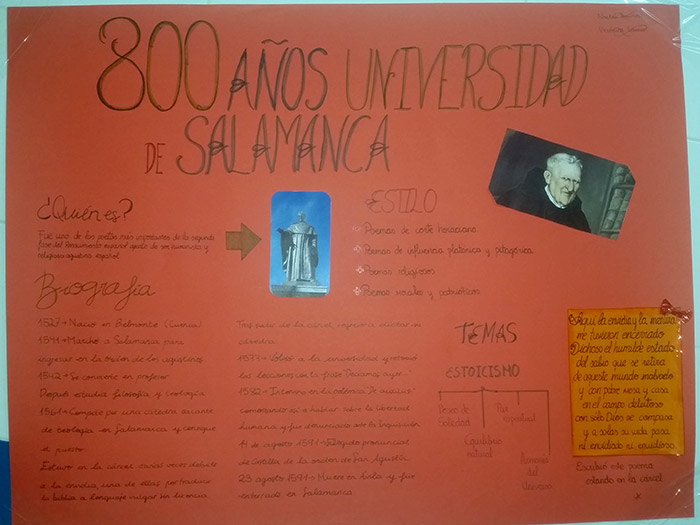 800 AÑOS UNIVERSIDAD
DE SALAMANCA
¿Quién es?
Fue uno de los poetas más importantes de la segunda
fase del Renacimiento español aparte de ser humanista y
religioso agustino español.
Biografía
1527→ Nació en Belmonte (Cuenca)
1541→ Marchó a Salamanca para
ingresar en la orden de los agustinos
1542→ Se convierte en profesor
Después estudia filosofía y teología
1561→ Compite por una cátedra
de teología en Salamanca y consigue
el puesto
Estuvo en la cárcel varias veces debido
a la envidia, una de ellas por traducir
la biblia a lenguaje vulgar sin licencia
Tras salir de la cárcel
cátedra.
1577→ Volvió a la universidad y retomó
las lecciones con la frase "Decíamos ayer..."
1582→
comenzando a hablar sobre la libertad
humana y fue denunciado ante la Inquisición
14 de agosto 1591→ Elegido provincial
de Castilla de la orden de San Agustín
23 agosto 1591→ Muere en Ávila y fue
enterrado en Salamanca
ESTILO
Poemas de corte horaciano
Poemas de influencia platónica y pitagórica
Poemas religiosos
Poemas morales y patrióticos
TEMAS
ESTOICISMO
Deseo de
Soledad
Paz
espiritual
Equilibrio
natural
Armonía
del
Universo
Aquí la envidia y la mentira
me tuvieron encerrado
Dichoso el humilde estado
del sabio que se retira
de aqueste mundo malvado
y con pobre mesa y casa
en el campo deleitoso
con solo Dios se compasa
y a solas su vida pasa
ni envidiado ni envidioso.
Escribió este poema
estando en la cárcel